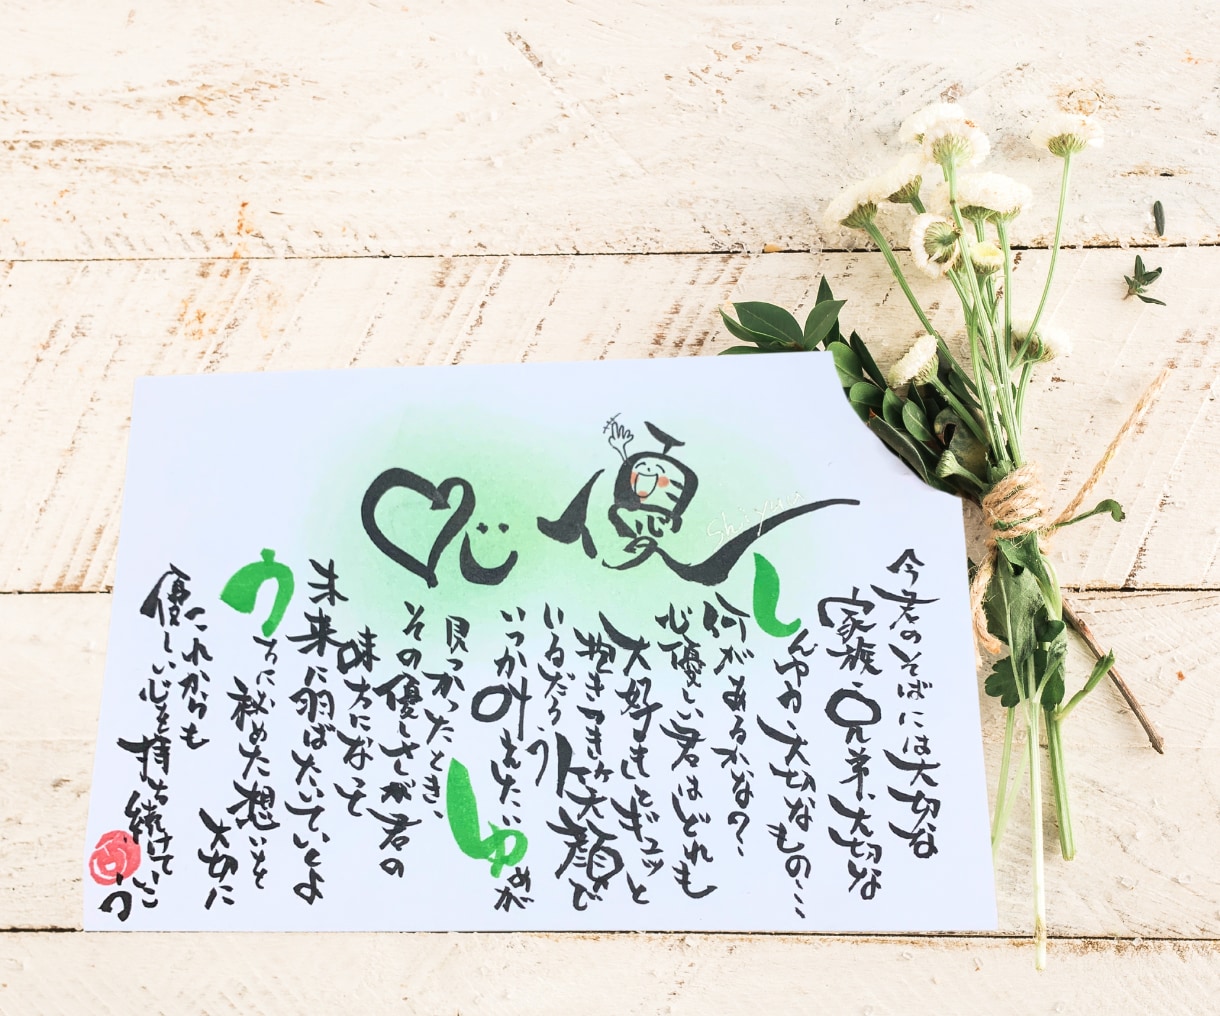 優心
今君のそばには大切な
家族、兄弟、大切な
しんゆう、大切なもの…
何があるかな?
心優しい君はどれも
大好きしてギュッと
抱きつき笑顔で
いるだろう
いつか叶えたい
ゆめが
見つかったとき、
その優しさが君の
味方になって
未来に羽ばたいていくよ
うちに秘めた想いを
大切に
これからも
優しい心を持ち続けていこう